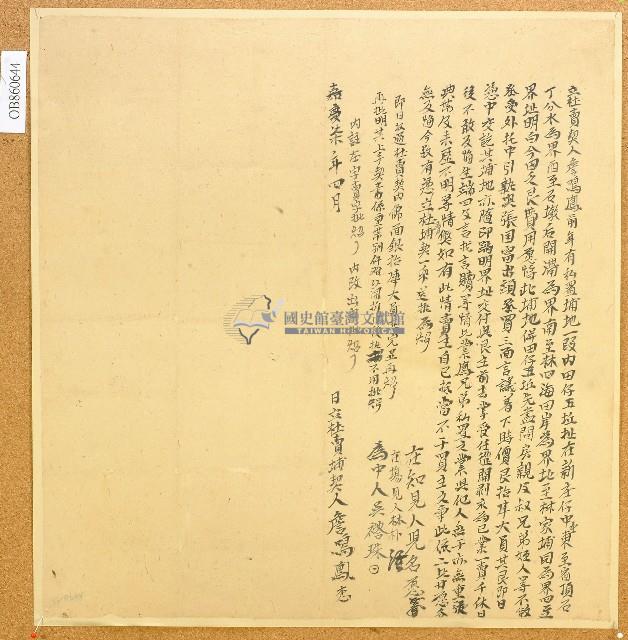 立杜賣契人詹鳴鳳前年有私置埔地一段內田仔五坵址在新庄仔中東至崙頂石
丁分水為界西至石墩石開滯為界南至林四海田岸為界北至林家埔田為界四至
界址明白今因乏艮費用愿將此埔地併田仔五坵先盡問房親及叔兄弟姪人等不敢
承受外托中引就與張国富出頭承買三面言議著下時價艮拾陸大員其艮即日
憑中交訖其埔地亦隨即踏明界址交付與艮主前去掌受任從開剥永為已業一賣千休日
後不敢及將生端四又言托言贖等情此業鳳兄弟私置之業與他人無干亦無重張
典掛及來歷不明等情獘如有此情賣主自已抵當不干買主之事此係二比甘愿各
無反悔今欲有憑立杜埔契一帋送執為炤
即日收過杜賣契內佛面銀拾陸大員完足再炤
再批明其上手契書係重帶別件
內註立字賣字批炤 內改出
在知見人兄名
在塲見人林朴
為中人吳啓珠
嘉慶柒年四月 日立杜賣埔契人詹鳴鳳
國史館臺灣文獻館
TAIWAN HISTORICA
OB860644